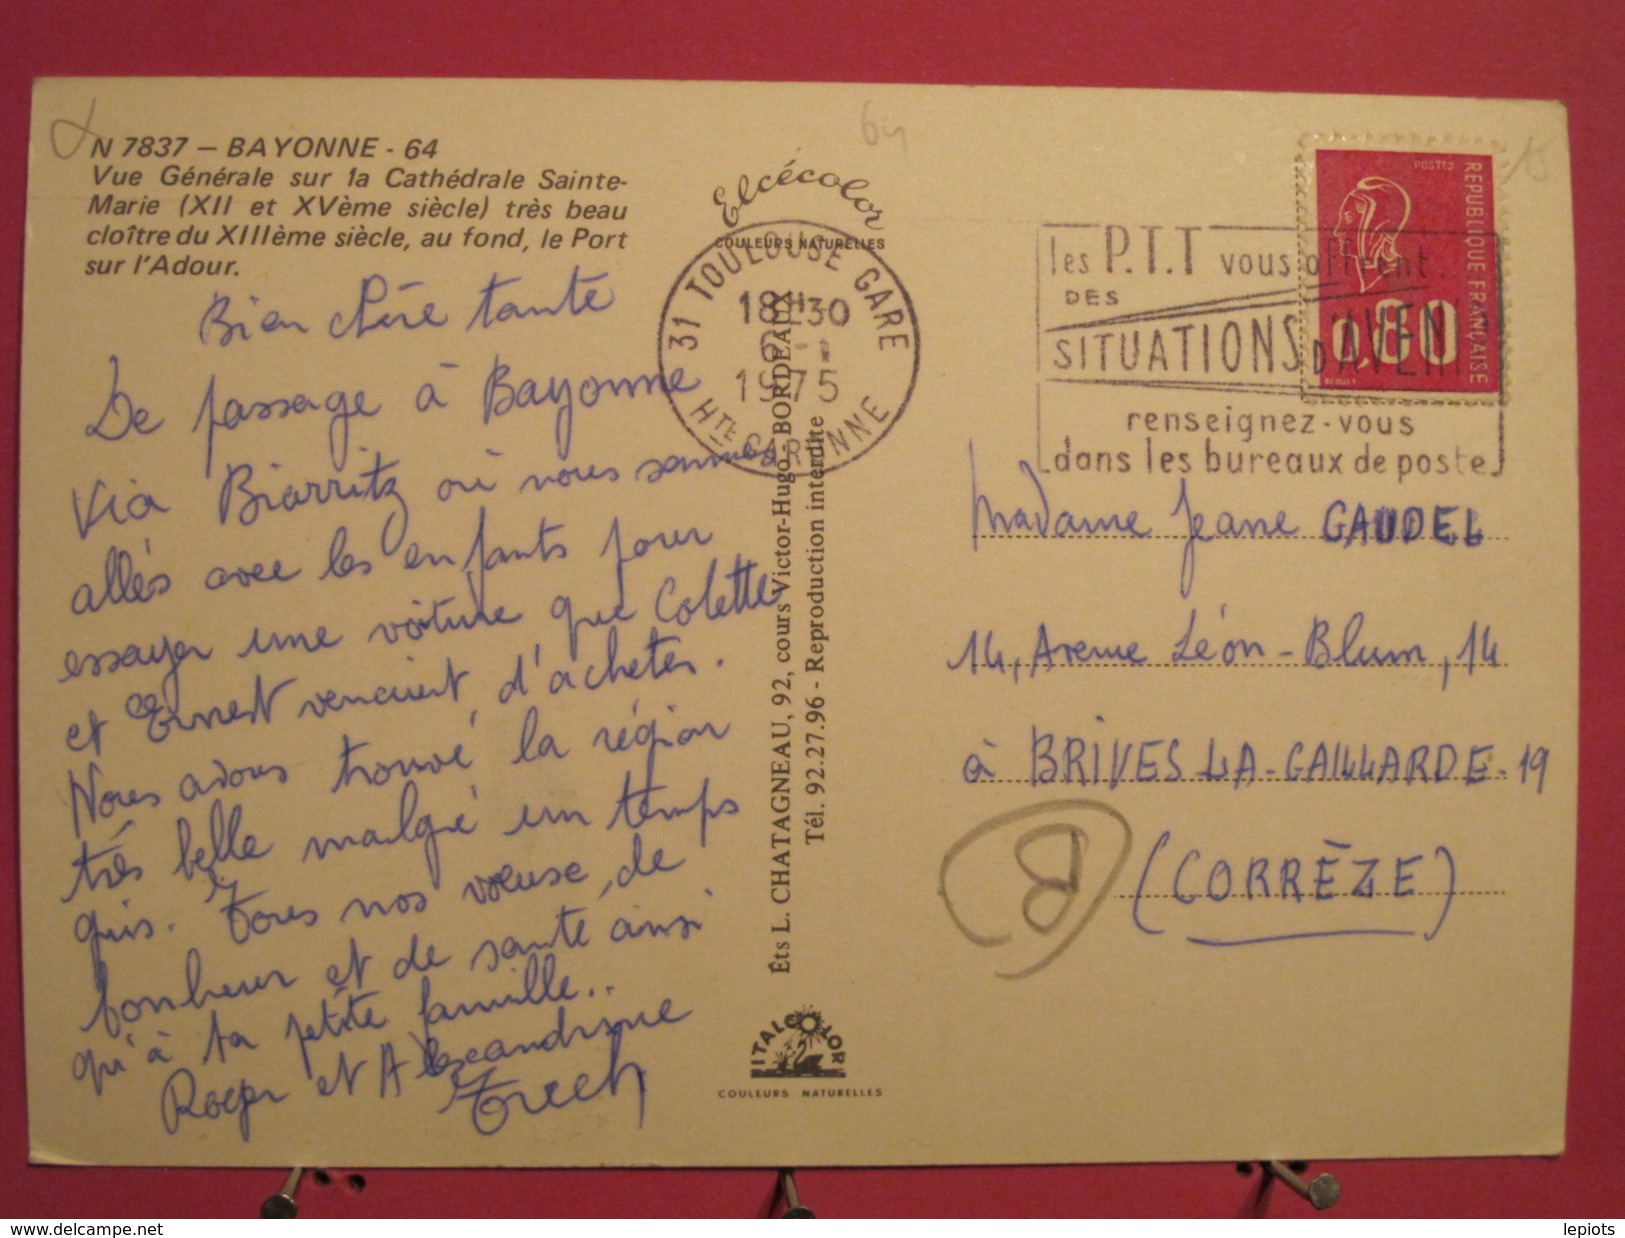 N 7837 – BAYONNE - 64
Vue Générale sur la Cathédrale Sainte-
Marie (XII et XVème siècle) très beau
cloître du XIIIème siècle, au fond, le Port
sur l'Adour.
Bien chère tante
De passage à Bayonne
via Biarritz où nous sommes
allés avec les enfants pour
essayer une voiture que Colette
et Ernest venaient d'acheter.
Nous avons trouvé la région
très belle malgré un temps
gris. Tous nos voeuse, de
bonheur et de sante ainsi
qu'à ta petite famille..
Roger et Alexandrine
64
Elcécolor
COULEURS NATURELLES
31 TOULOUSE GARE
18H30
1975
HTE GARONNE
Éts L. CHATAGNEAU, 92, cours Victor-Hugo - BORDEAUX
Tél. 92.27.96 - Reproduction interdite
ITALCOLOR
COULEURS NATURELLES
les P.T.T vous offrent...
DES
SITUATIONS D'AVENIR
renseignez-vous
dans les bureaux de poste
POSTES
REPUBLIQUE FRANÇAISE
0,80
BEQUET
15
Madame Jeane GAUDEL
14, Avenue Léon-Blum, 14
à BRIVES LA-GAILLARDE-19
(CORRÈZE)
8
lepiots